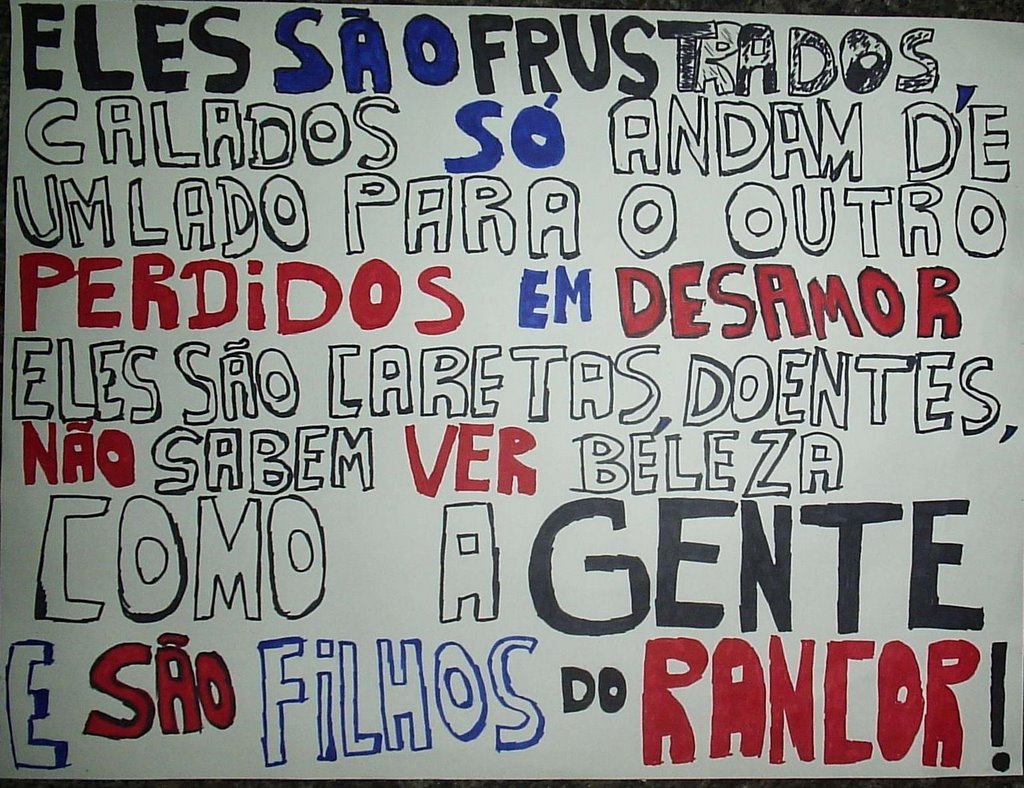 ELES SÃO FRUSTRADOS,
CALADOS SÓ ANDAM DE
UM LADO PARA O OUTRO
PERDiDOS EM DESAMOR
ELES SÃO CARETAS, DOENTES,
NÃO SABEM VER BELEZA
COMO A GENTE
E SÃO FiLHOS DO RANCOR!